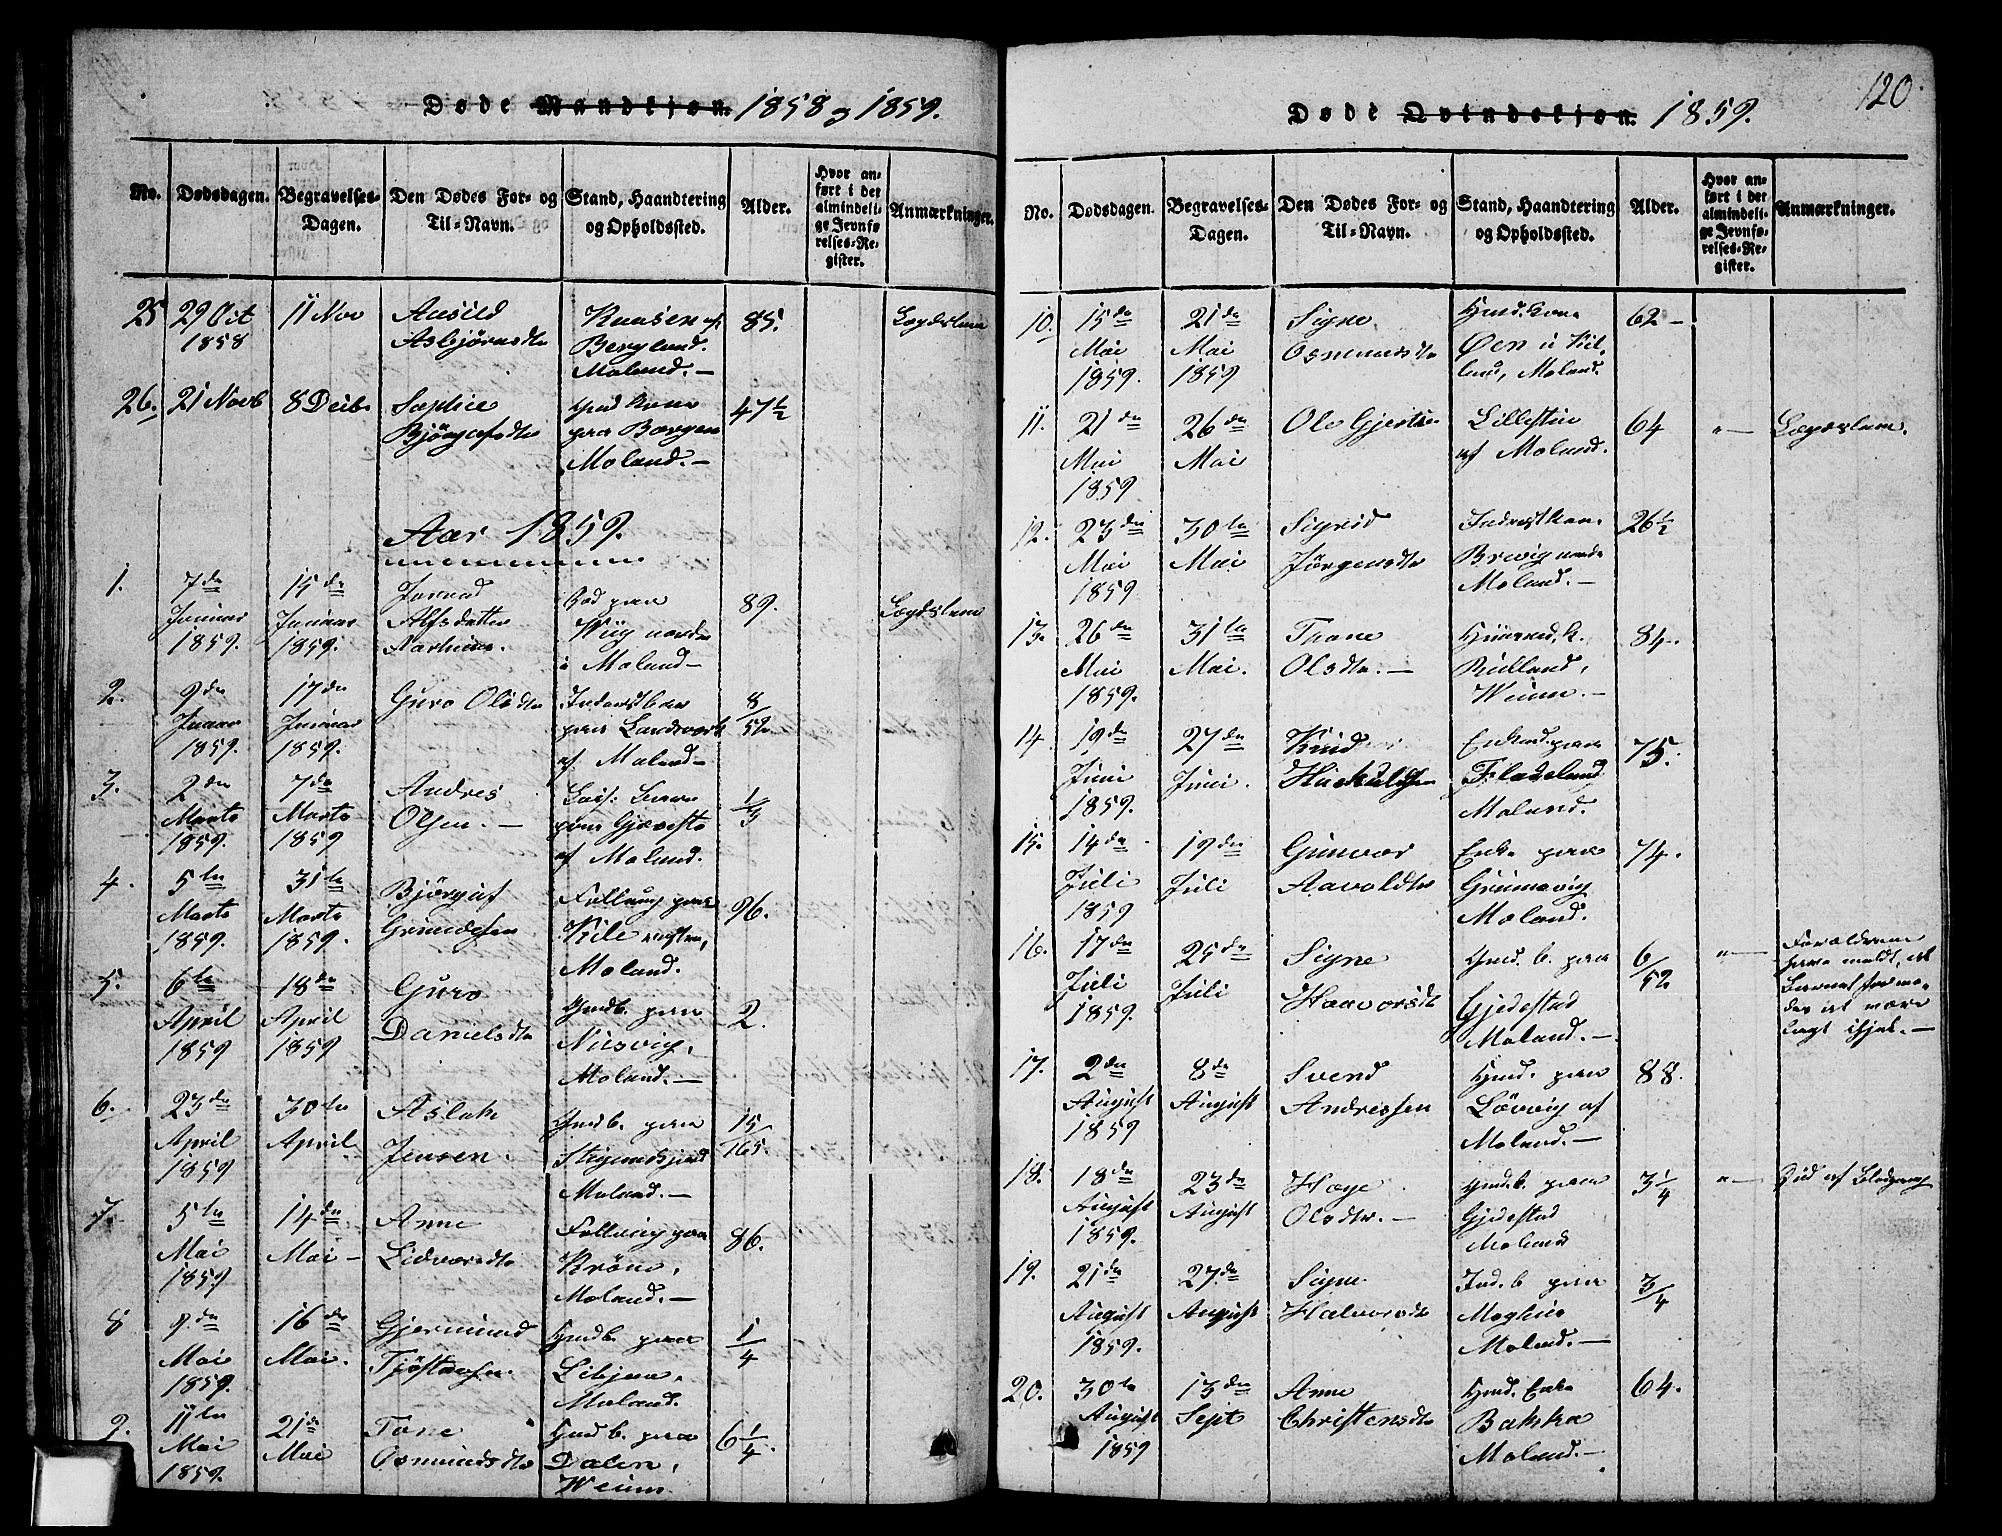 Døde Mandkjøn. 1858 og 1859.
No.
Dødsdagen.
Begravelses-
Dagen.
Den Dødes For- og
Til-Navn.
Stand, Haandtering
og Opholdssted.
Alder.
Hvor an-
ført i det
almindeli-
ge Jevnfø-
relses-Re-
gister.
Anmærkninger.
25
29 Oct
1858
11 Nov
Asbjørnsdtr
Berglund.
Moland.—
85.
Lægdslem
26.
21 Novb
8 Decb.
Sophie
Bjørgufsdtr
Gmd kone
paa Borgen
Moland.—
47½
Aar 1859.
1.
7de
Januar
1859.
15de
Januar
1859.
Alfsdatter
paa
Wiig nordre
i Moland—
89.
Lægdslem
2.
9de
Januar
1859.
17de
Januar
1859.
Guro Olsdtr
paa Landsverk
af Moland—
8/52
3.
2den
Marts
1859.
7de
Marts
1859
Andres
Olsen.—
paa Gjævestø
af Moland.
1/3
4.
5te
Marts
1859.
31te
Marts
1859.
Bjørguf
Føllaug paa
Kile vestre,
Moland.
96.
5.
6te
April
1859
18de
April
1859
Guro
Danielsdtr
Gmdb. paa
Nesvig,
Moland.—
2.
6.
23de
April
1859
30te
April
Aslak
Jensen.
Gmdb. paa
Moland.—
15/165.
7.
5te
Mai
1859
14de
Mai—
Anne
Lidvorsdtr
paa
Moland.—
86.
8
9de
Mai
1859.
16de
Mai.
Gjermund
Tjøstolvsen
Gmdb. paa
Libjøn,
Moland.
1/4
9.
11te
Mai
1859.
21de
Mai
Tone
Osmundsdtr
Gmd b. paa
Dalen,
Weum
6¼.
Døde Qvindekjøn. 1859.
120.
No.
Dødsdagen.
Begravelses-
Dagen.
Den Dødes For- og
Til-Navn.
Stand, Haandtering
og Opholdssted.
Alder.
Hvor an-
ført i det
almindeli-
ge Jevnfø-
relses-Re-
gister.
Anmærkninger.
10.
15de
Mai
1859.
21de
Mai
1859
Signe
Osmundsdtr
Gmd. kone
Øen i Kil-
land, Moland.
62—
11.
21de
Mai
1859
26de
Mai
Ole Gjertsen
Lillestue
af Moland.
64
"—
Lægdslem.
12.
23de
Mai
1859
30te
Mai
Sigrid
Jørgensdtr
Brevig nordre
Moland.—
26½
13.
26de
Mai
1859.
31te
Mai.
Tone
Olsdtr.—
Weum.—
84.
14
19de
Juni
1859.
27de
Juni.
Knud
Enkemd. paa
Fladeland
Moland.
75.
15.
14de
Juli
1859
19de
Juli
Gunvor
Aavoldtr
Enke paa
Grunnevig
Moland.
74.
16.
17de
Juli
1859.
25de
Juli
Signe
Haavorsdtr
Gmd. b. paa
Gjedestad
Moland.—
6/52
"—
Forældrene
have meldt, at
Barnet formo-
des at være
lagt ihjel.—
17.
2den
August
1859
8de
August
Svend
Andressen
Gmd. paa
Løvvig af
Moland.—
88.
18.
18de
August
1859.
23de
August
Hæge
Olsdtr.—
Gmdb. paa
Gjedestad
Moland
3¼
"—
Død af Blodgang
19.
21de
August
1859.
27de
August
Signe
Halvorsdtr
Ind. b paa
Moland.—
3/4
20.
30te
August
1859
13de
Sept
Anne
Christensdtr
Gmd. Enke
Bakka
Moland.—
64.